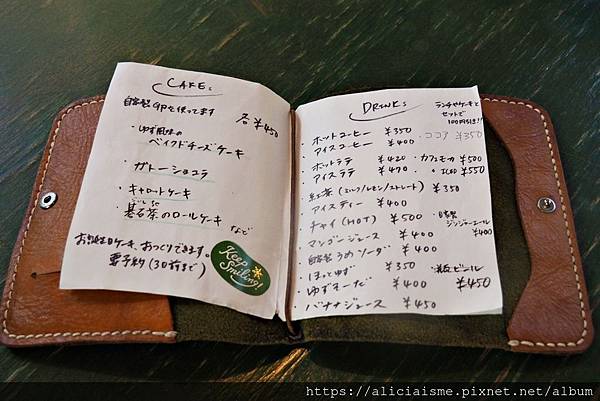 CAKE
自家製 卵を使ってます
各 ¥450
・ゆず風味の
ベイクドチーズケーキ
・ガトーショコラ
・キャロットケーキ
・碁石茶のロールケーキ
ごいしちゃ
など
お誕生日ケーキ、おつくりできます。
要予約(3日前まで)
Keep
Smiling!
DRINK
ランチやケーキと
セットで
100円引き!!
・ホットコーヒー ¥350
アイスコーヒー ¥400
・ココア ¥350
・ホットラテ ¥420
アイスラテ ¥470
・カフェモカ ¥500
〃 ICED ¥550
・紅茶(ミルク/レモン/ストレート) ¥350
・アイスティー ¥400
・チャイ(HOT) ¥500
・自家製
ジンジャーエール
¥400
・マンゴージュース ¥400
・自家製 うめソーダ ¥400
・ほっとゆず ¥350
・瓶ビール
¥450
・ゆずそーだ ¥400
・バナナジュース ¥450
https://aliciaisme.pixnet.net/album